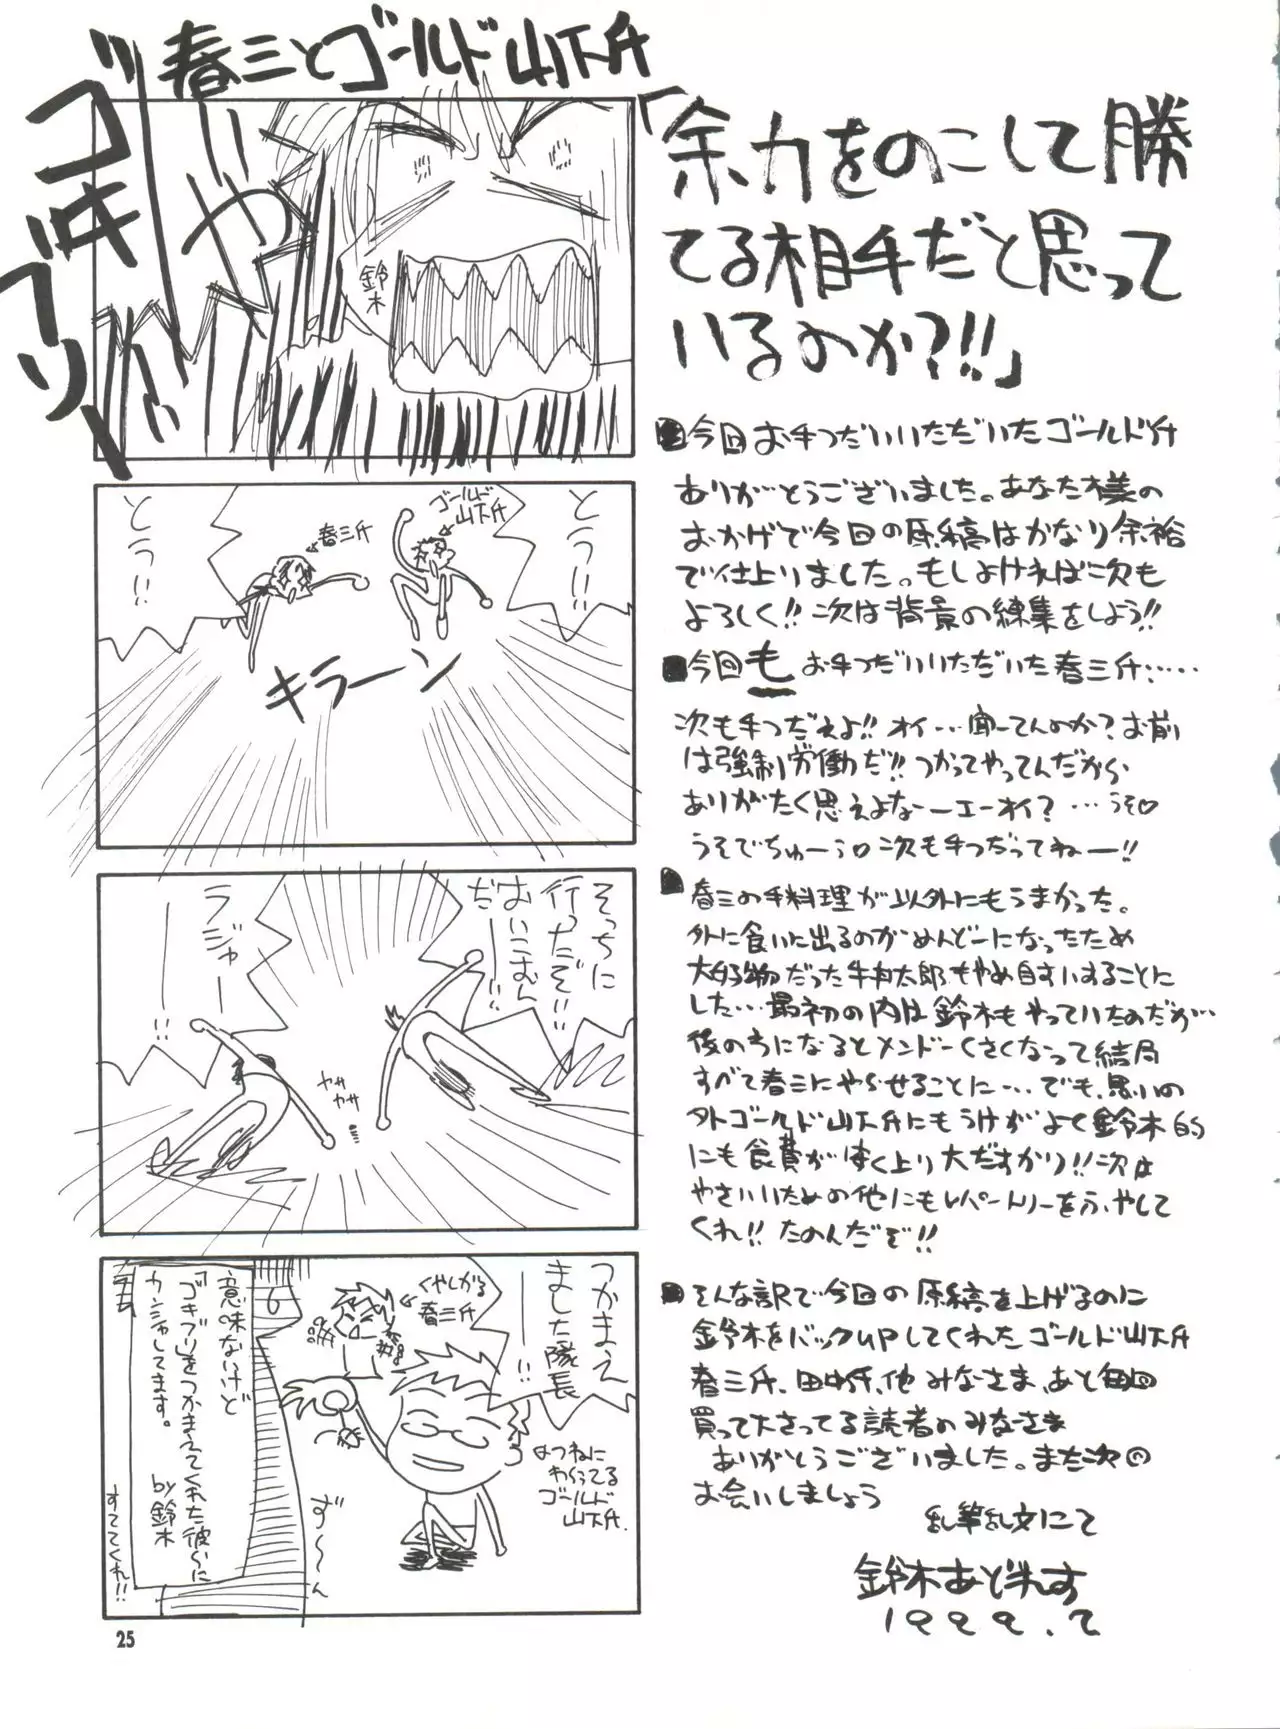 春三とゴールド山下氏
ゴキ
ブリー
いやーー
鈴木
とうっ!!
ゴールド
山下氏
春三氏
とうっ!!
キラーン
そっちに
行ったぞ!!
おいこむん
だーー!!
ラジャーーー!!
ササ
ササ
つかまえ
ました隊長
ーー!!
くやしがる
春三氏
はつねに
わらってる
ゴールド
山下氏.
ず〜〜ん
意味ないけど
「ゴキブリ」をつかまえてくれた彼らに
カンシャしてます。
by鈴木
すててくれ!!
25
「余力をのこして勝
てる相手だと思って
いるのか?!!」
■今回お手つだいいただいたゴールド氏
ありがとうございました。あなた様の
おかげで今回の原稿はかなり余裕
で仕上りました。もしよければ次も
よろしく!!次は背景の練集をしよう!!
■今回もお手つだいいただいた春三氏……
次も手つだえよ!!オイ…聞ーてんのか?お前
は強制労働だ!!つかってやってんだから
ありがたく思えよなーエーオイ?…うそ♡
うそでちゅーぅ♡次も手つだってねー!!
■春三の手料理が以外にもうまかった。
外に食いに出るのがめんどーになったため
大好物だった牛丼太郎もやめ自すいすることに
した…最初の内は鈴木もやっていたのだが…
後の方になるとメンドーくさくなって結局
すべて春三にやらせることに…でも、思いの
外ゴールド山下氏にもうけがよく鈴木的
にも食費が体く上り大だすかり!!次は
やさいいための他にもレパートリーをふやして
くれ!!たのんだぞ!!
■そんな訳で今回の原稿を上げるのに
鈴木をバックupしてくれたゴールド山下氏
春三氏、田中氏、他みなさま、あと毎回
買って下さってる読者のみなさま
ありがとうございました。また次の
お会いしましょう
乱筆乱文にて
鈴木あどれす
1999.2